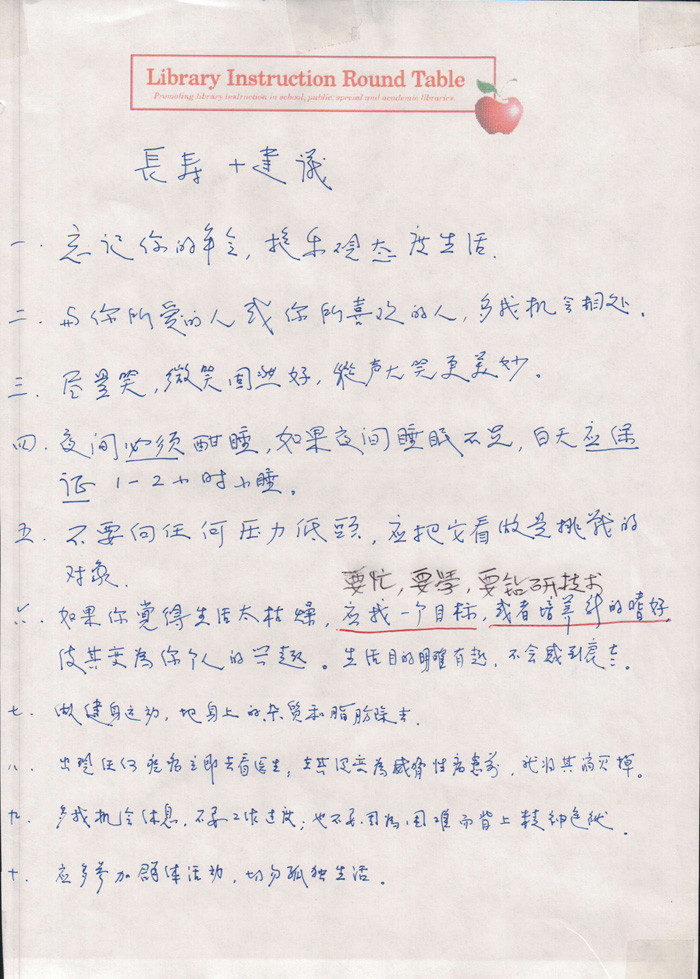 Library Instruction Round Table
Promoting library instruction in school, public, special and academic libraries.
長寿十建議
一. 忘记你的年令, 按乐观态度生活.
二. 与你所爱的人或你所喜欢的人, 多找机会相处.
三. 尽量笑, 微笑固然好, 縱声大笑更美妙.
四. 夜间必须酣睡, 如果夜间睡眠不足, 白天应保
证 1-2小时小睡.
五. 不要向任何压力低頭, 应把它看做是挑战的
对象.
要忙, 要学, 要钻研技术
六. 如果你覚得生活太枯燥, 应找一个目标, 或者培养新的嗜好
使其变為你个人的兴趣. 生活目的明確有趣, 不会感到衰老.
七. 做健身运动, 把身上的杂质和脂肪除去.
八. 出现任何疾病立即去看医生, 在其演变為威脅性病患前, 就将其消灭掉.
九. 多找机会休息, 不要工作过度; 也不要因為困难而背上精神包袱.
十. 应多参加群体活动, 切勿孤独生活.